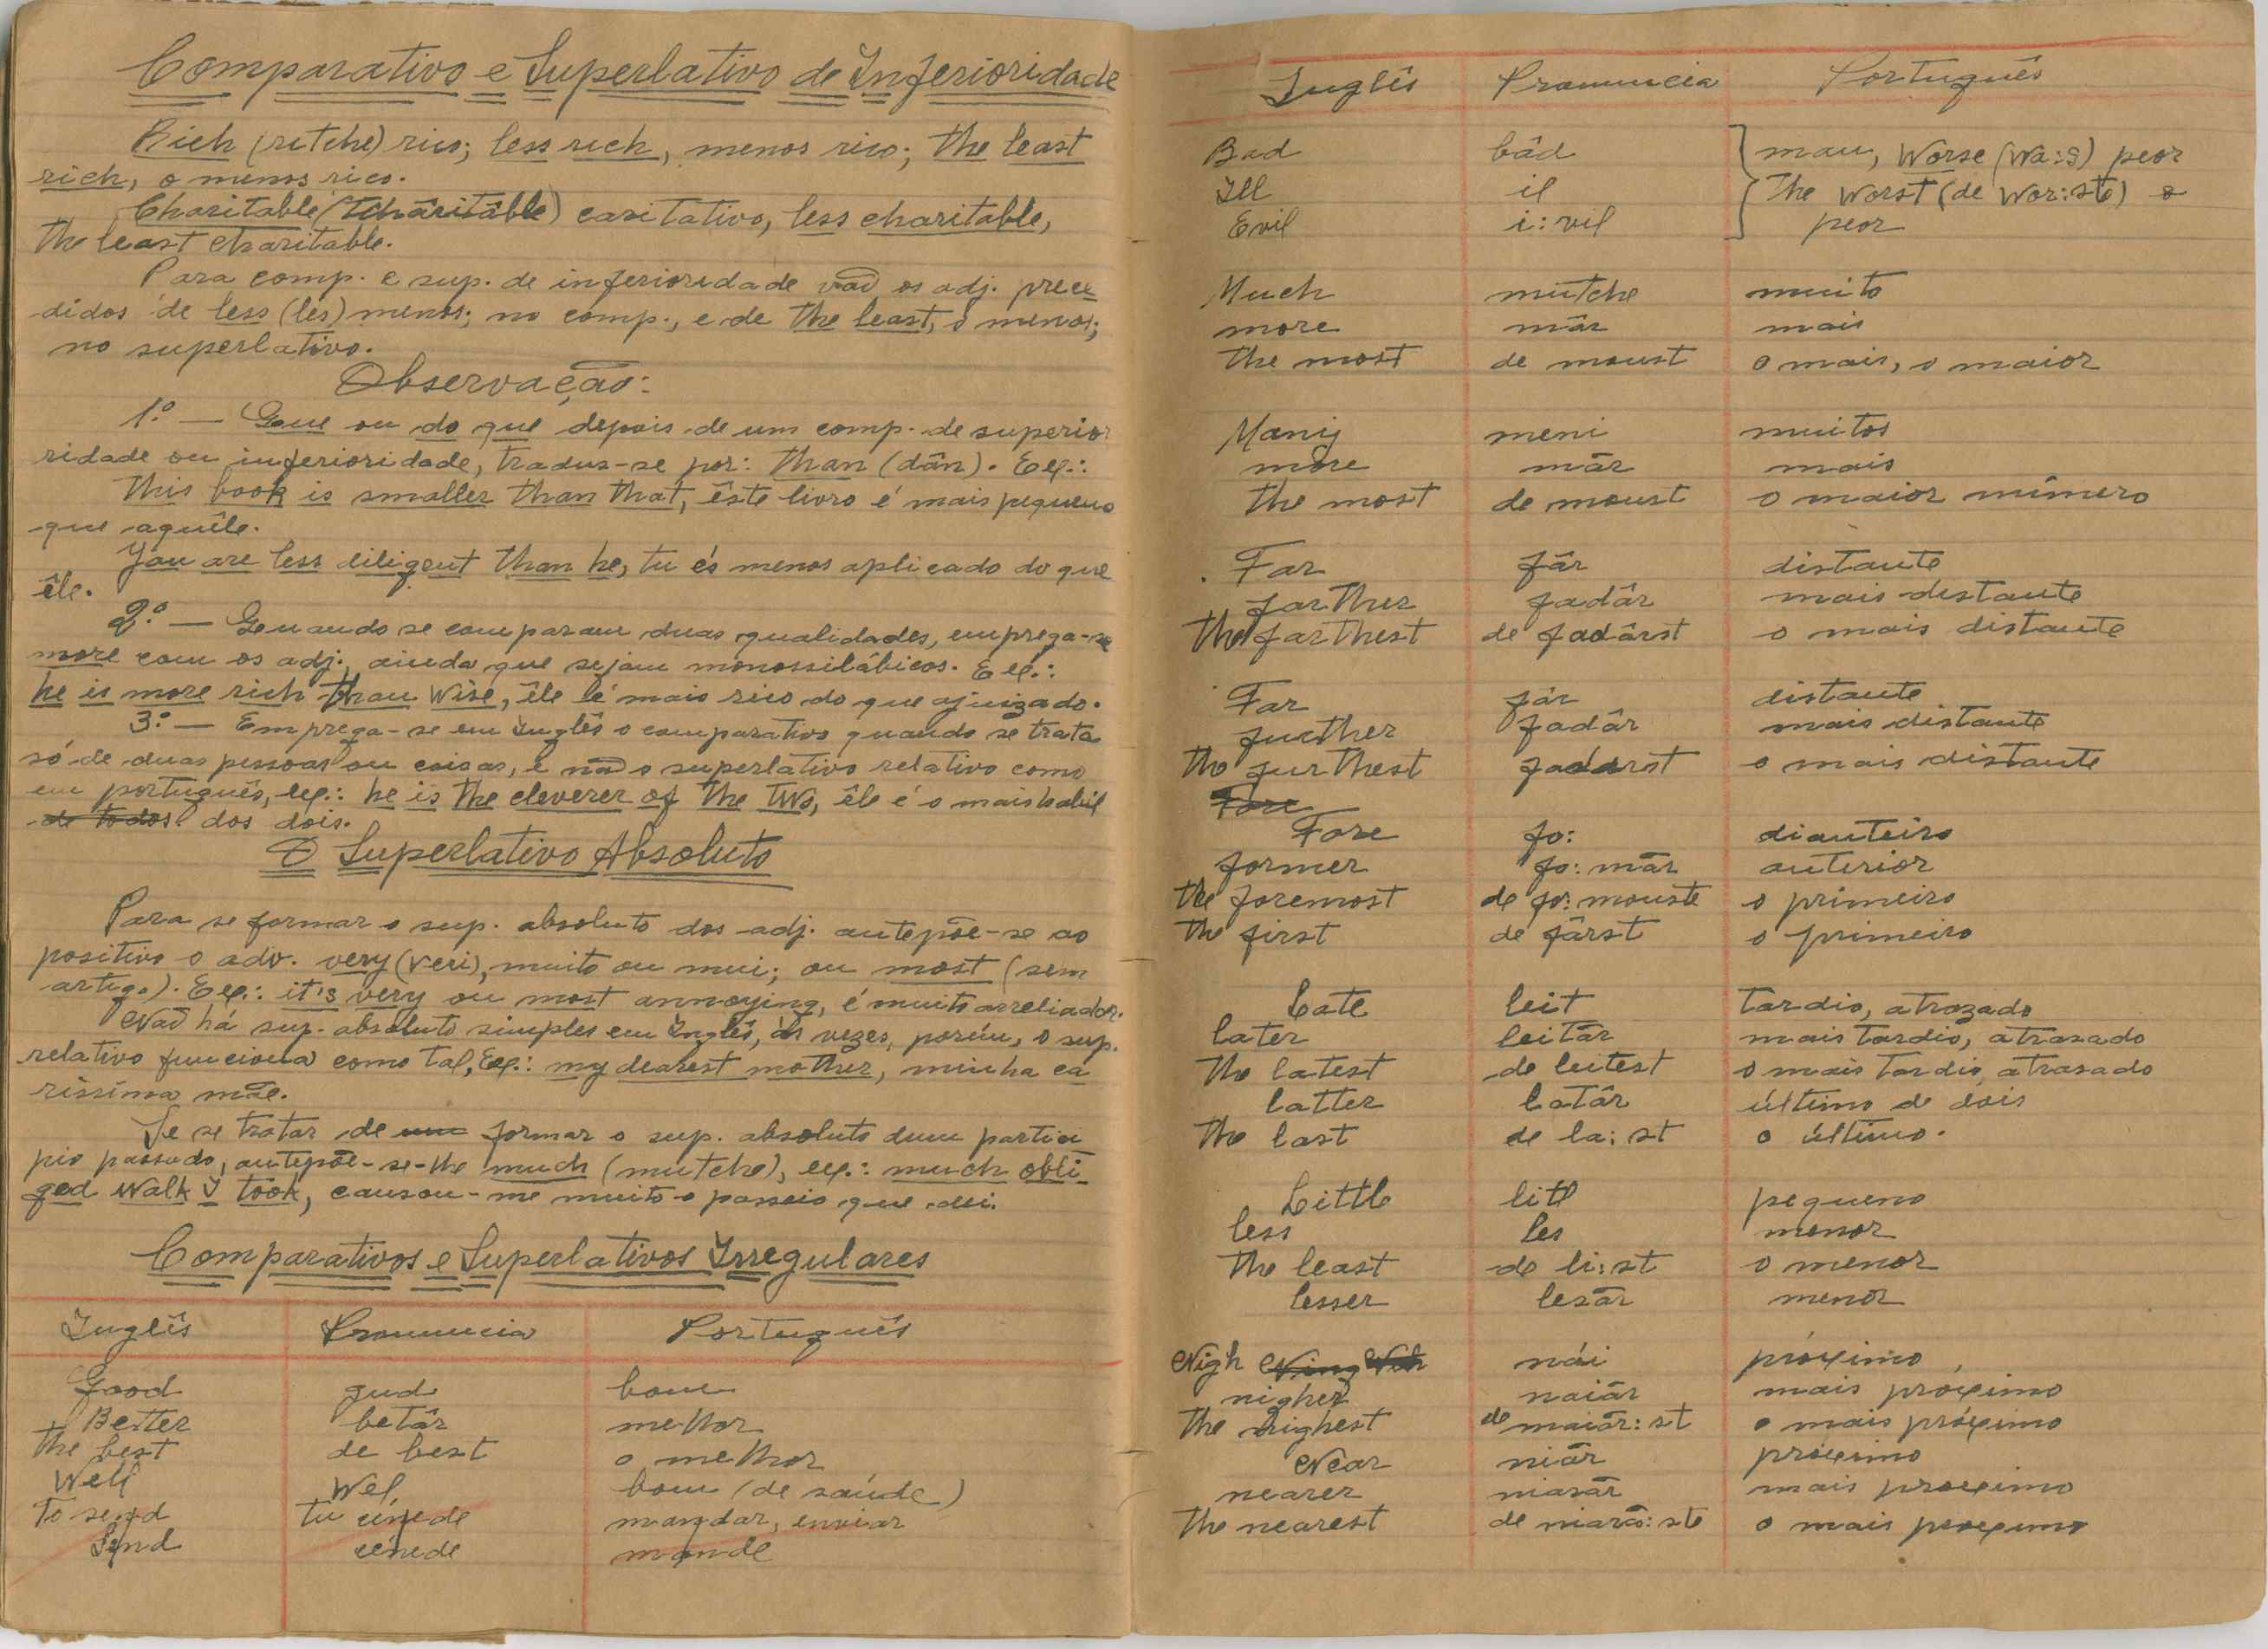 Comparativo e Superlativo de Inferioridade
Rich (ritche) rico; less rich, menos rico; the least
rich, o menos rico.
Charitable (tchâritâble) caritativo, less charitable,
the least charitable.
Para comp. e sup. de inferioridade vaõ os adj. prece-
didos de less (les) menos; no comp., e de the least, o menos;
no superlativo.
Observação:
1.º — Que ou do que depois de um comp. de superio
ridade ou inferioridade, traduz-se por: than (dân). Ex.:
This book is smaller than that, êste livro é mais pequeno
que aquêle.
You are less diligent than he, tu és menos aplicado do que
êle.
2.º — Quando se comparam duas qualidades, emprega-se
more com os adj., ainda que sejam monossilábicos. Ex.:
he is more rich than wise, êle é mais rico do que ajuizado.
3.º — Emprega-se em Inglês o comparativo quando se trata
só de duas pessoas ou coisas, e naõ o superlativo relativo como
em português, ex.: he is the cleverer of the two, êle é o mais habil
de todos dos dois.
O Superlativo Absoluto
Para se formar o sup. absoluto dos adj. antepõe-se ao
positivo o adv. very (veri), muito ou mui; ou most (sem
artigo). Ex.: it's very ou most annoying, é muito arreliador.
Naõ há sup. absoluto simples em Inglês, ás vezes, porém, o sup.
relativo funciona como tal, Ex.: my dearest mother, minha ca
rissima mãe.
Se se tratar de um formar o sup. absoluto dum partici
pio passado, antepõe-se-lhe much (mutche), ex.: much obli-
ged walk I took, causou-me muito o passeio que dei.
Comparativos e Superlativos Irregulares
Inglês Pronuncia Português
Good gud bom
Better betâr melhor
The best de best o melhor
Well Wel bom (de saúde)
To send tu cénede mandar, enviar
Send cénede mande
Inglês Pronuncia Português
Bad bâd mau, Worse (Wa:s) peor
Ill il The worst (de wor:ste) o
Evil i:vil peor
Much mutche muito
more mâr mais
the most de moust o mais, o maior
Many meni muitos
more mâr mais
the most de moust o maior número
Far fâr distante
farther fadâr mais distante
The farthest de fadârst o mais distante
Far fár distante
further fadâr mais distante
the furthest fadârst o mais distante
Fore
Fore fo: dianteiro
former fo:mâr anterior
the foremost de fo:mouste o primeiro
the first de fârst o primeiro
Late leit tardio, atrazado
later leitâr mais tardio, atrasado
The latest de leitest o mais tardio, atrasado
latter latâr último de dois
The last de la:st o último.
Little litl pequeno
less les menor
the least de li:st o menor
lesser lesâr menor
Nigh nái próximo
nigher naiâr mais próximo
The nighest de naiâr:st o mais próximo
Near niâr próximo
nearer niarâr mais proximo
the nearest de niarâ:ste o mais proximo